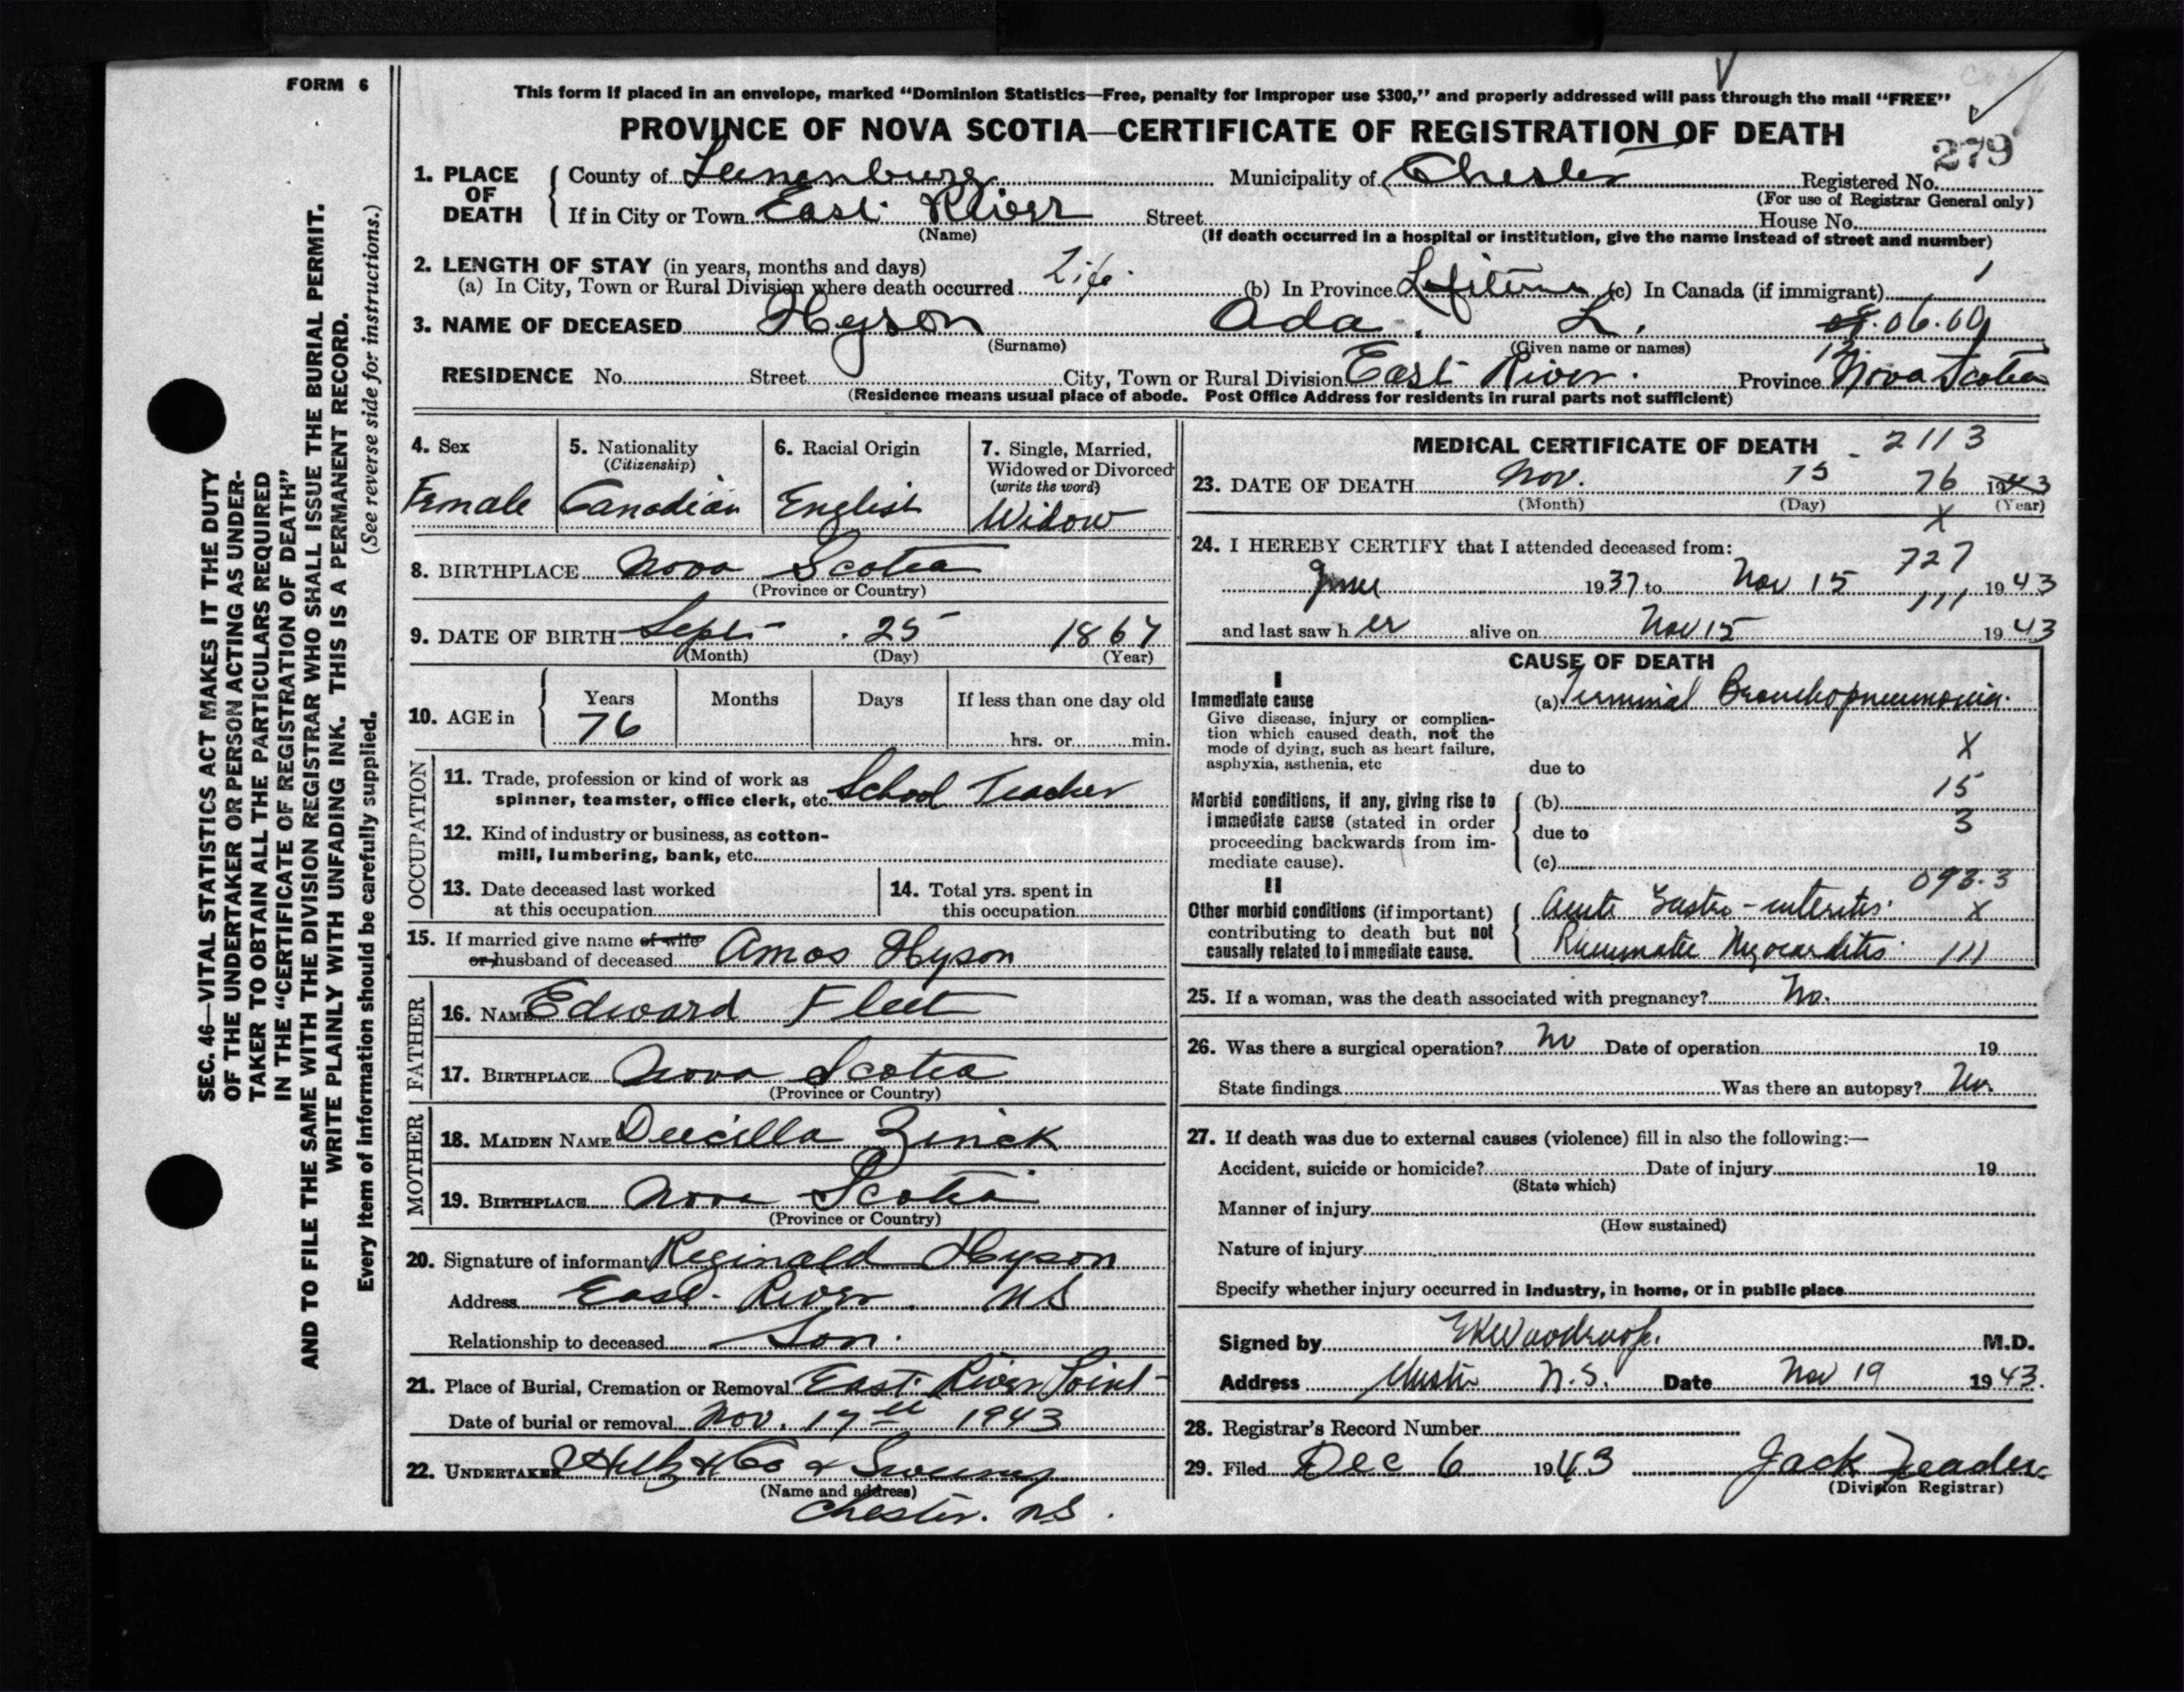 FORM 6
This form if placed in an envelope, marked “Dominion Statistics—Free, penalty for improper use $300,” and properly addressed will pass through the mail “FREE”
PROVINCE OF NOVA SCOTIA—CERTIFICATE OF REGISTRATION OF DEATH
279
1. PLACE OF DEATH { County of Lunenburg Municipality of Chester Registered No.
(For use of Registrar General only)
If in City or Town East River Street House No.
(Name) (If death occurred in a hospital or institution, give the name instead of street and number)
2. LENGTH OF STAY (in years, months and days)
(a) In City, Town or Rural Division where death occurred Life. (b) In Province Lifetime (c) In Canada (if immigrant) 1
3. NAME OF DECEASED Hyson Ada. L. 06.60
(Surname) (Given name or names)
RESIDENCE No. Street City, Town or Rural Division East River. Province Nova Scotia
(Residence means usual place of abode. Post Office Address for residents in rural parts not sufficient)
4. Sex Female
5. Nationality (Citizenship) Canadian
6. Racial Origin English
7. Single, Married, Widowed or Divorced (write the word) Widow
8. BIRTHPLACE Nova Scotia
(Province or Country)
9. DATE OF BIRTH Sept. 25 1867
(Month) (Day) (Year)
10. AGE in { Years 76 Months Days If less than one day old
hrs. or min.
OCCUPATION
11. Trade, profession or kind of work as
spinner, teamster, office clerk, etc. School Teacher
12. Kind of industry or business, as cotton-
mill, lumbering, bank, etc.
13. Date deceased last worked
at this occupation
14. Total yrs. spent in
this occupation
15. If married give name of wife
or husband of deceased Amos Hyson
FATHER
16. NAME Edward Fleet
17. BIRTHPLACE Nova Scotia
(Province or Country)
MOTHER
18. MAIDEN NAME Zinck
19. BIRTHPLACE Nova Scotia
(Province or Country)
20. Signature of informant Reginald Hyson
Address East River. NS
Relationship to deceased Son.
21. Place of Burial, Cremation or Removal East River Point
Date of burial or removal Nov. 17th 1943
22. UNDERTAKER & Co &
(Name and address)
Chester. NS.
MEDICAL CERTIFICATE OF DEATH 2113
23. DATE OF DEATH Nov. 15 76 1943
(Month) (Day) (Year)
X
24. I HEREBY CERTIFY that I attended deceased from:
727
June 1937 to Nov 15 1943
111
and last saw her alive on Nov 15 1943
CAUSE OF DEATH
I
Immediate cause
Give disease, injury or complica-
tion which caused death, not the
mode of dying, such as heart failure,
asphyxia, asthenia, etc
(a) Terminal Bronchopneumonia.
X
due to
15
Morbid conditions, if any, giving rise to
immediate cause (stated in order
proceeding backwards from im-
mediate cause).
(b)
3
due to
(c)
093.3
II
Other morbid conditions (if important)
contributing to death but not
causally related to immediate cause.
Acute Gastro-enteritis. X
Rheumatic Myocarditis. 111
25. If a woman, was the death associated with pregnancy? No.
26. Was there a surgical operation? No Date of operation 19
State findings Was there an autopsy? No.
27. If death was due to external causes (violence) fill in also the following:—
Accident, suicide or homicide? Date of injury 19
(State which)
Manner of injury
(How sustained)
Nature of injury
Specify whether injury occurred in industry, in home, or in public place
Signed by M.D.
Address Chester N.S. Date Nov 19 1943.
28. Registrar's Record Number
29. Filed Dec 6 1943 Jack
(Division Registrar)
SEC. 46—VITAL STATISTICS ACT MAKES IT THE DUTY
OF THE UNDERTAKER OR PERSON ACTING AS UNDER-
TAKER TO OBTAIN ALL THE PARTICULARS REQUIRED
IN THE “CERTIFICATE OF REGISTRATION OF DEATH”
AND TO FILE THE SAME WITH THE DIVISION REGISTRAR WHO SHALL ISSUE THE BURIAL PERMIT.
WRITE PLAINLY WITH UNFADING INK. THIS IS A PERMANENT RECORD.
Every item of information should be carefully supplied. (See reverse side for instructions.)